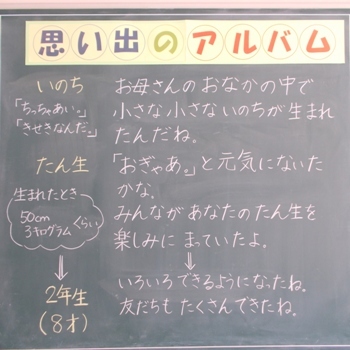 思い出のアルバム
いのち
「ちっちゃあい。」
「きせきなんだ。」
お母さんのおなかの中で
小さな小さないのちが生まれ
たんだね。
たん生
「おぎゃあ。」と元気にないた
かな。
みんながあなたのたん生を
楽しみにまっていたよ。
生まれたとき
50cm
3キログラム
くらい
↓
↓
いろいろできるようになったね。
友だちもたくさんできたね。
2年生
(8才)